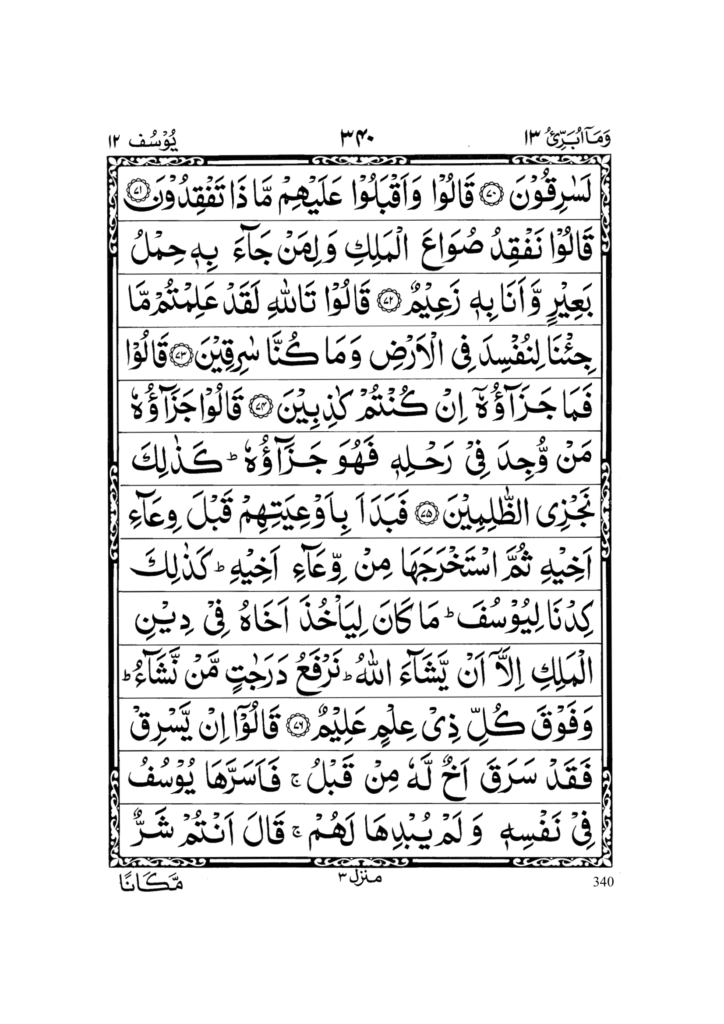 وَمَاۤ اُبَرِّئُ ۱۳ ۳۴۰ يُوْسُف ۱۲
لَسٰرِقُوْنَ ﴿۷۰﴾ قَالُوْا وَاَقْبَلُوْا عَلَيْهِمْ مَّا ذَا تَفْقِدُوْنَ ﴿۷۱﴾
قَالُوْا نَفْقِدُ صُوَاعَ الْمَلِكِ وَلِمَنْ جَآءَ بِهٖ حِمْلُ
بَعِيْرٍ وَّاَنَا بِهٖ زَعِيْمٌ ﴿۷۲﴾ قَالُوْا تَاللّٰهِ لَقَدْ عَلِمْتُمْ مَّا
جِئْنَا لِنُفْسِدَ فِى الْاَرْضِ وَمَا كُنَّا سٰرِقِيْنَ ﴿۷۳﴾ قَالُوْا
فَمَا جَزَآؤُهٗۤ اِنْ كُنْتُمْ كٰذِبِيْنَ ﴿۷۴﴾ قَالُوْا جَزَآؤُهٗ
مَنْ وُّجِدَ فِىْ رَحْلِهٖ فَهُوَ جَزَآؤُهٗ ؕ كَذٰلِكَ
نَجْزِى الظّٰلِمِيْنَ ﴿۷۵﴾ فَبَدَاَ بِاَوْعِيَتِهِمْ قَبْلَ وِعَآءِ
اَخِيْهِ ثُمَّ اسْتَخْرَجَهَا مِنْ وِّعَآءِ اَخِيْهِ ؕ كَذٰلِكَ
كِدْنَا لِيُوْسُفَ ؕ مَا كَانَ لِيَاْخُذَ اَخَاهُ فِىْ دِيْنِ
الْمَلِكِ اِلَّاۤ اَنْ يَّشَآءَ اللّٰهُ ؕ نَرْفَعُ دَرَجٰتٍ مَّنْ نَّشَآءُ ؕ
وَفَوْقَ كُلِّ ذِىْ عِلْمٍ عَلِيْمٌ ﴿۷۶﴾ قَالُوْۤا اِنْ يَّسْرِقْ
فَقَدْ سَرَقَ اَخٌ لَّهٗ مِنْ قَبْلُ ۚ فَاَسَرَّهَا يُوْسُفُ
فِىْ نَفْسِهٖ وَلَمْ يُبْدِهَا لَهُمْ ۚ قَالَ اَنْتُمْ شَرٌّ
340 منزل ۳ مَّكَانًا